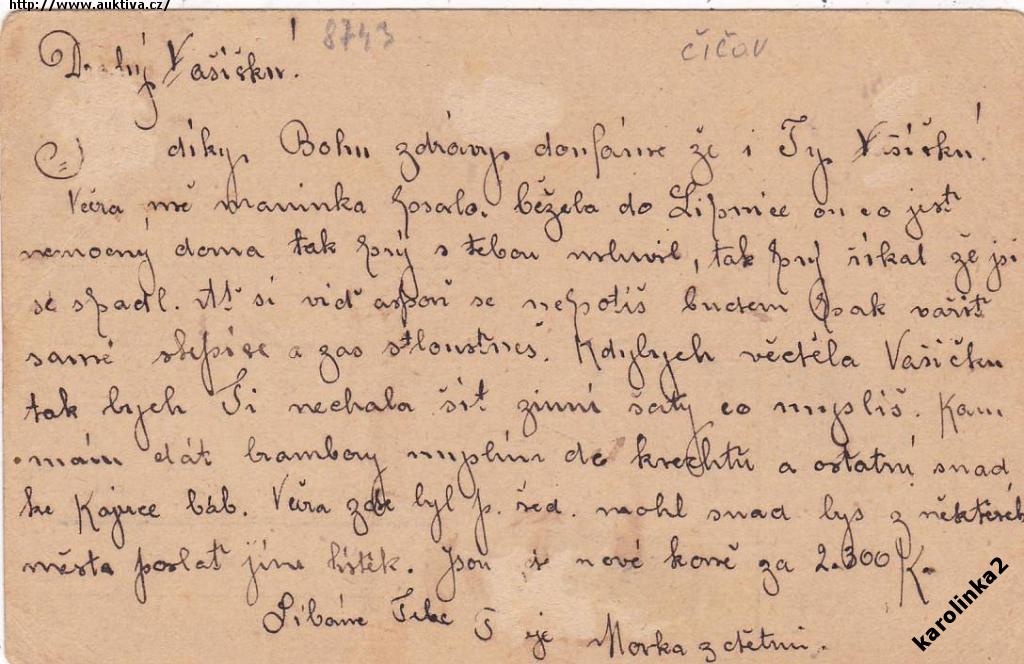 http://www.auktiva.cz/
8743
ČÍČOV
Drahý Vašíčku!
díky Bohu zdrávy doufáme že i Ty Vašíčku!
Včra mě maminka psala. běžela do Lipnice on co jest
nemocný doma tak prý s tebou mluvil, tak prý říkal že jsi
se spadl. Ať si viď aspoň se nepotíš budem pak vářit
samé slepice a zas stloustneš. Kdybych věděla Vašíčku
tak bych Ti nechala šít zimní šaty co myslíš. Kam
mám dát brambory myslím do krechtu a ostatní snad
ke Kajuce báb. Včra zde byl p. řed. mohl snad bys z některeh
města poslať jím lístek. Jsou i nové koně za 2.300 K.
Líbáme Tebe Tvje Morka z dětmi.
karolinka2